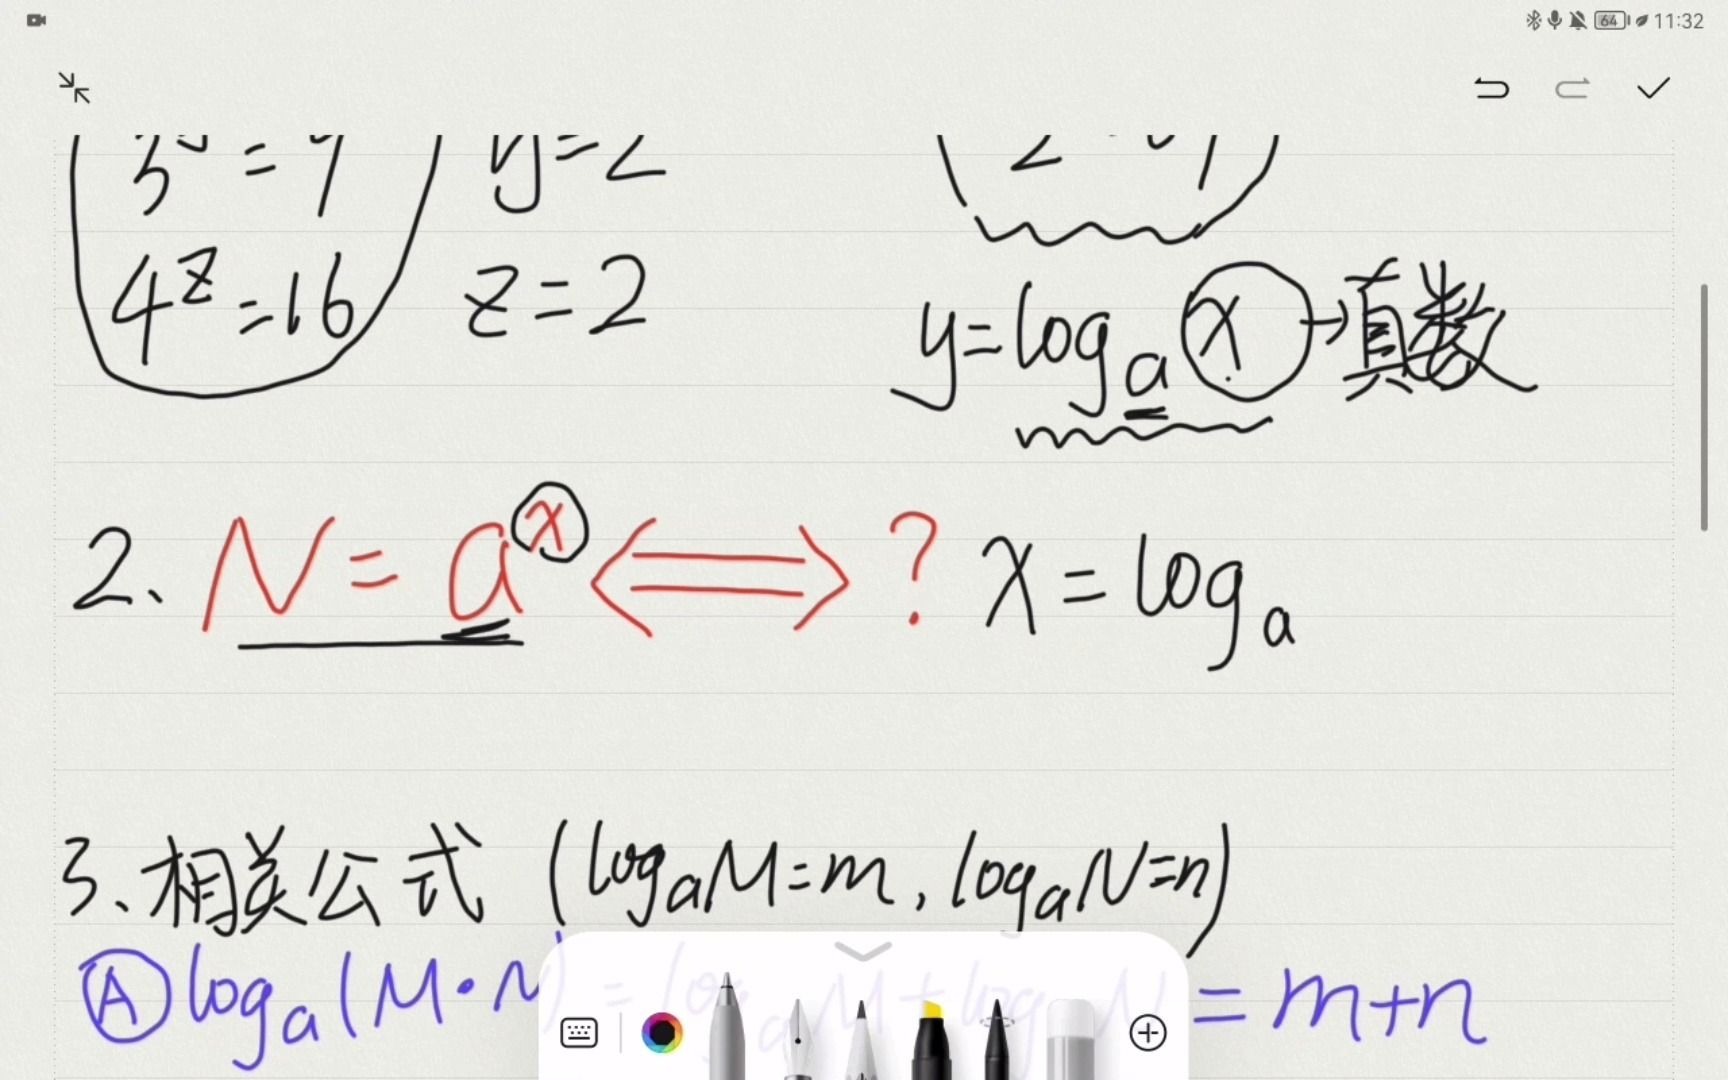 64 11:32
3^y=9 y=2
4^z=16 z=2
y=log_a x→真数
2、N=a^x⟺? x=log_a
3、相关公式 (log_a M=m, log_a N=n)
Ⓐlog_a(M·N)=log_a M+log_a N=m+n